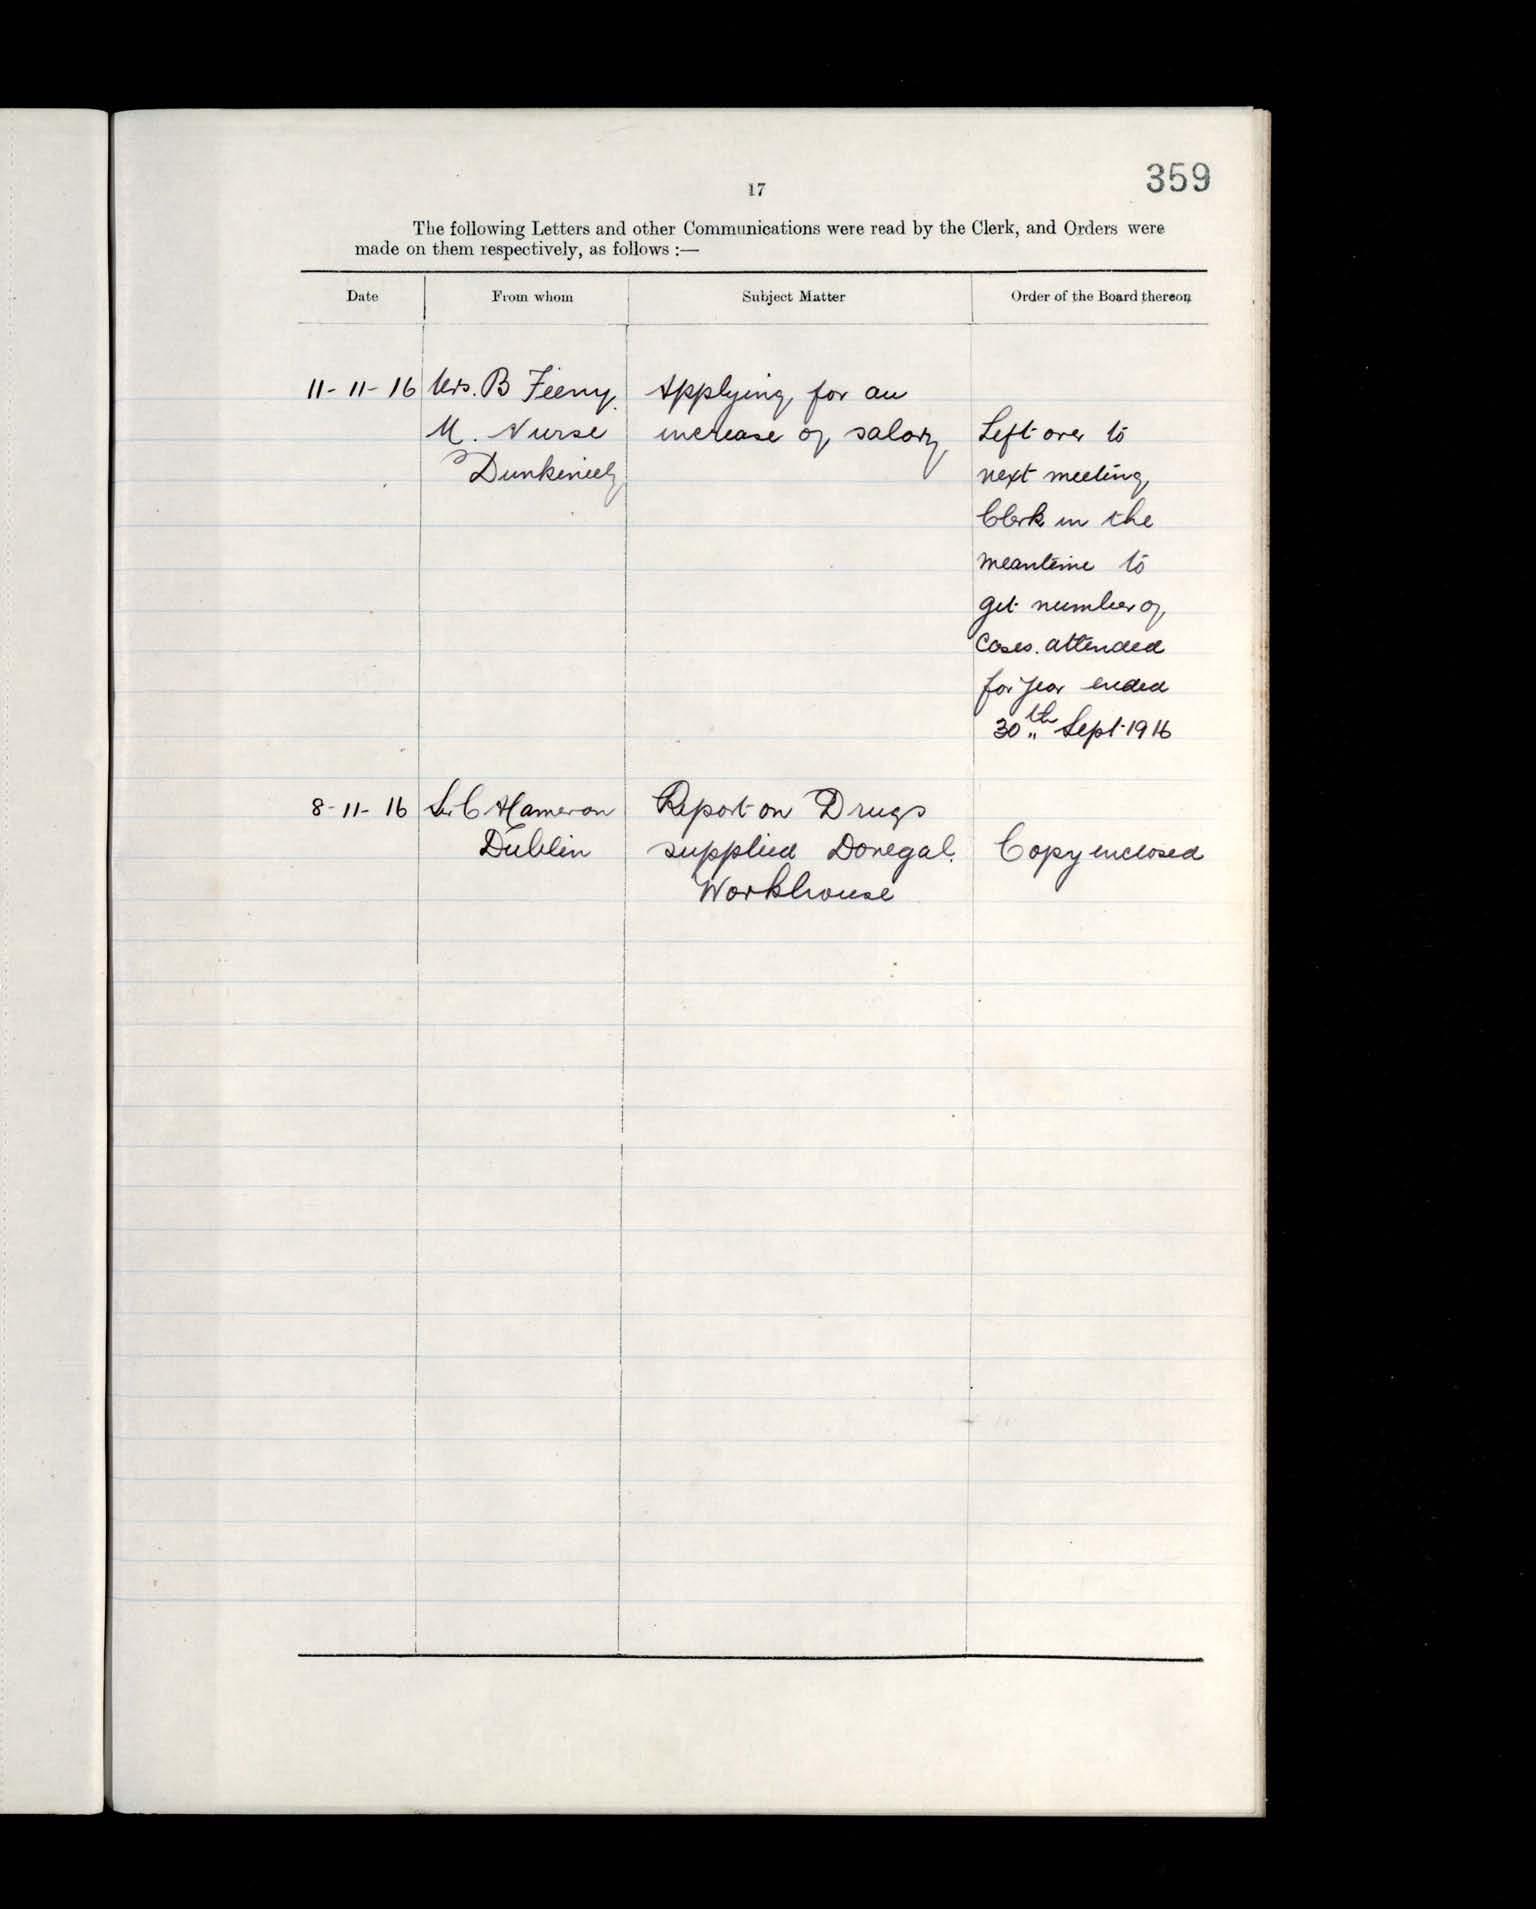 359
17
The following Letters and other Communications were read by the Clerk, and Orders were
made on them respectively, as follows :—
Date From whom Subject Matter Order of the Board thereon
11-11-16 Mrs. B Feeny Applying for an
M. Nurse increase of salary Left over to
Dunkineely next meeting,
Clerk in the
meantime to
get number of
cases attended
for year ended
30th Sept 1916
8-11-16 Sir C Cameron Report on Drugs
Dublin supplied Donegal Copy enclosed
Workhouse